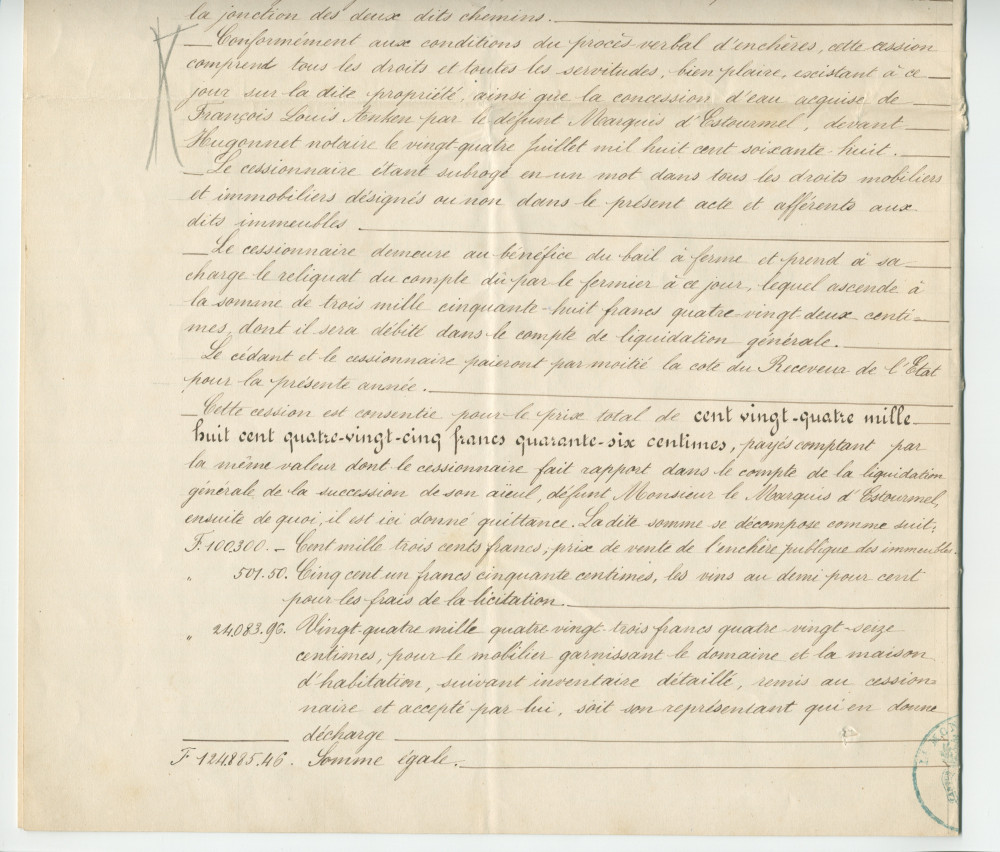 la jonction des deux dits chemins.
Conformément aux conditions du procès verbal d'enchères, cette cession
comprend tous les droits et toutes les servitudes, bien plaire, excistant à ce
jour sur la dite propriété, ainsi que la concession d'eau acquise de
François Louis Anken par le défunt Marquis d'Estourmel, devant
Hugonnet notaire le vingt-quatre Juillet mil huit cent soixante-huit.
Le cessionnaire étant subrogé en un mot dans tous les droits mobiliers
et immobiliers désignés ou non dans le présent acte et afférents aux
dits immeubles
Le cessionnaire demeure au bénéfice du bail à ferme et prend à sa
charge le reliquat du compte dû par le fermier à ce jour, lequel ascende à
la somme de trois mille cinquante-huit francs quatre-vingt-deux centi=
mes, dont il sera débité dans le compte de liquidation générale.
Le cédant et le cessionnaire paieront par moitié la cote du Receveur de l'Etat
pour la présente année.
Cette cession est consentie pour le prix total de cent vingt-quatre mille
huit cent quatre-vingt-cinq francs quarante-six centimes, payés comptant par
la même valeur dont le cessionnaire fait rapport dans le compte de la liquidation
générale de la succession de son aïeul, défunt Monsieur le Marquis d'Estourmel,
ensuite de quoi, il est ici donné quittance. La dite somme se décompose comme suit:
F. 100300. – Cent mille trois cents francs; prix de vente de l'enchère publique des immeubles.
" 501.50. Cinq cent un francs cinquante centimes, les vins au demi pour cent
pour les frais de la licitation.
" 24,083.96. Vingt-quatre mille quatre-vingt-trois francs quatre-vingt-seize
centimes, pour le mobilier garnissant le domaine et la maison
d'habitation, suivant inventaire détaillé, remis au cession=
naire et accepté par lui, soit son représentant qui en donne
décharge
F 124.885.46. Somme égale.